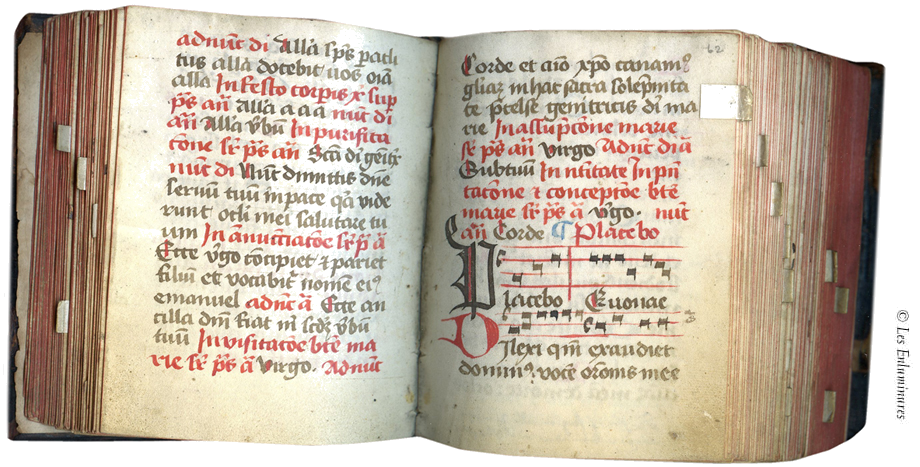 adnūc di Alla sp̄s parli
tus alla docebit vos oīa
alla In festo corpis xp̄ sup
p̄s an̄ Alla a a a nūc di
an̄ Alla v̄bū In purifica
cōne sr̄ p̄s an̄ Sc̄a di genitx
nūc di Nūc dimittis dn̄e
servū tuū in pace q̄a vide
runt ocli mei salutare tu
um In ānūcciacōe sr̄ p̄ ā
Ecce v̓go cōcipiet ⁊ pariet
filiū et vocabit̄ nomē ei⁹
emanuel adnūc ā Ecce an
cilla dn̄i fiat m̄ scd̄z v̄bū
tuū In visitacōe btē ma
rie sr̄ p̄s ā Virgo. Adnūc
62
Corde et aīo xp̄o canam⁹
gliaz in hac sacra solēpnita
te p̄celse genitricis di ma
rie In assūpcōne marie
sr̄ p̄s an̄ Virgo Adnūc di ā
Sub tuū In n̄titate In p̄n̄
tacōne ⁊ concepcōe btē
marie sr̄ p̄s ā v̓go. nūc
an̄ Corde ¶ Placebo
Placebo Euouae
Dilexi qm̄ exaudiet
domin⁹ vocē orōnis mee
© Les Enluminures